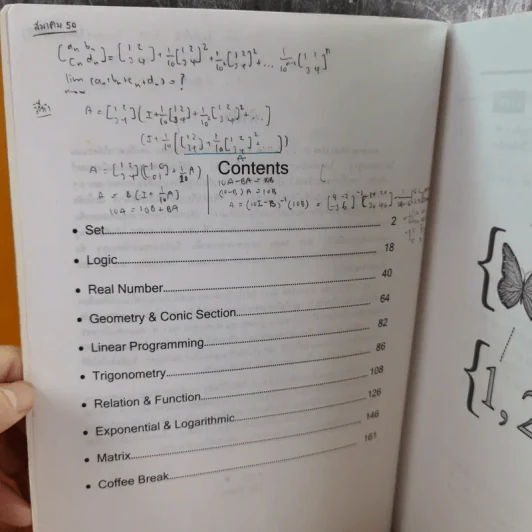 สมาคม 50
[aₙ bₙ cₙ dₙ] = [1 2 3 4] + 1/10 [1 2 3 4]² + 1/10² [1 2 3 4] + ... 1/10ⁿ⁻¹ [1 2 3 4]ⁿ
lim (aₙ+bₙ+cₙ+dₙ) = ?
วิธีทำ A = [1 2 3 4] (I + 1/10 [1 2 3 4] + 1/10² [1 2 3 4]² + ...)
(I + 1/10 [[1 2 3 4] + 1/10 [1 2 3 4]² ...])
A
A = [1 2 3 4] ([1 0 0 1] + 1/10 A)
A = B(I + 1/10 A)
10A = 10B + BA
Contents
10A - BA = 10B
(10 - B) A = 10B
A = (10I - B)⁻¹ (10B) =
• Set 2
• Logic 18
• Real Number 40
• Geometry & Conic Section 64
• Linear Programming 82
• Trigonometry 86
• Relation & Function 108
• Exponential & Logarithmic 126
• Matrix 146
• Coffee Break 161
{
{1, 2